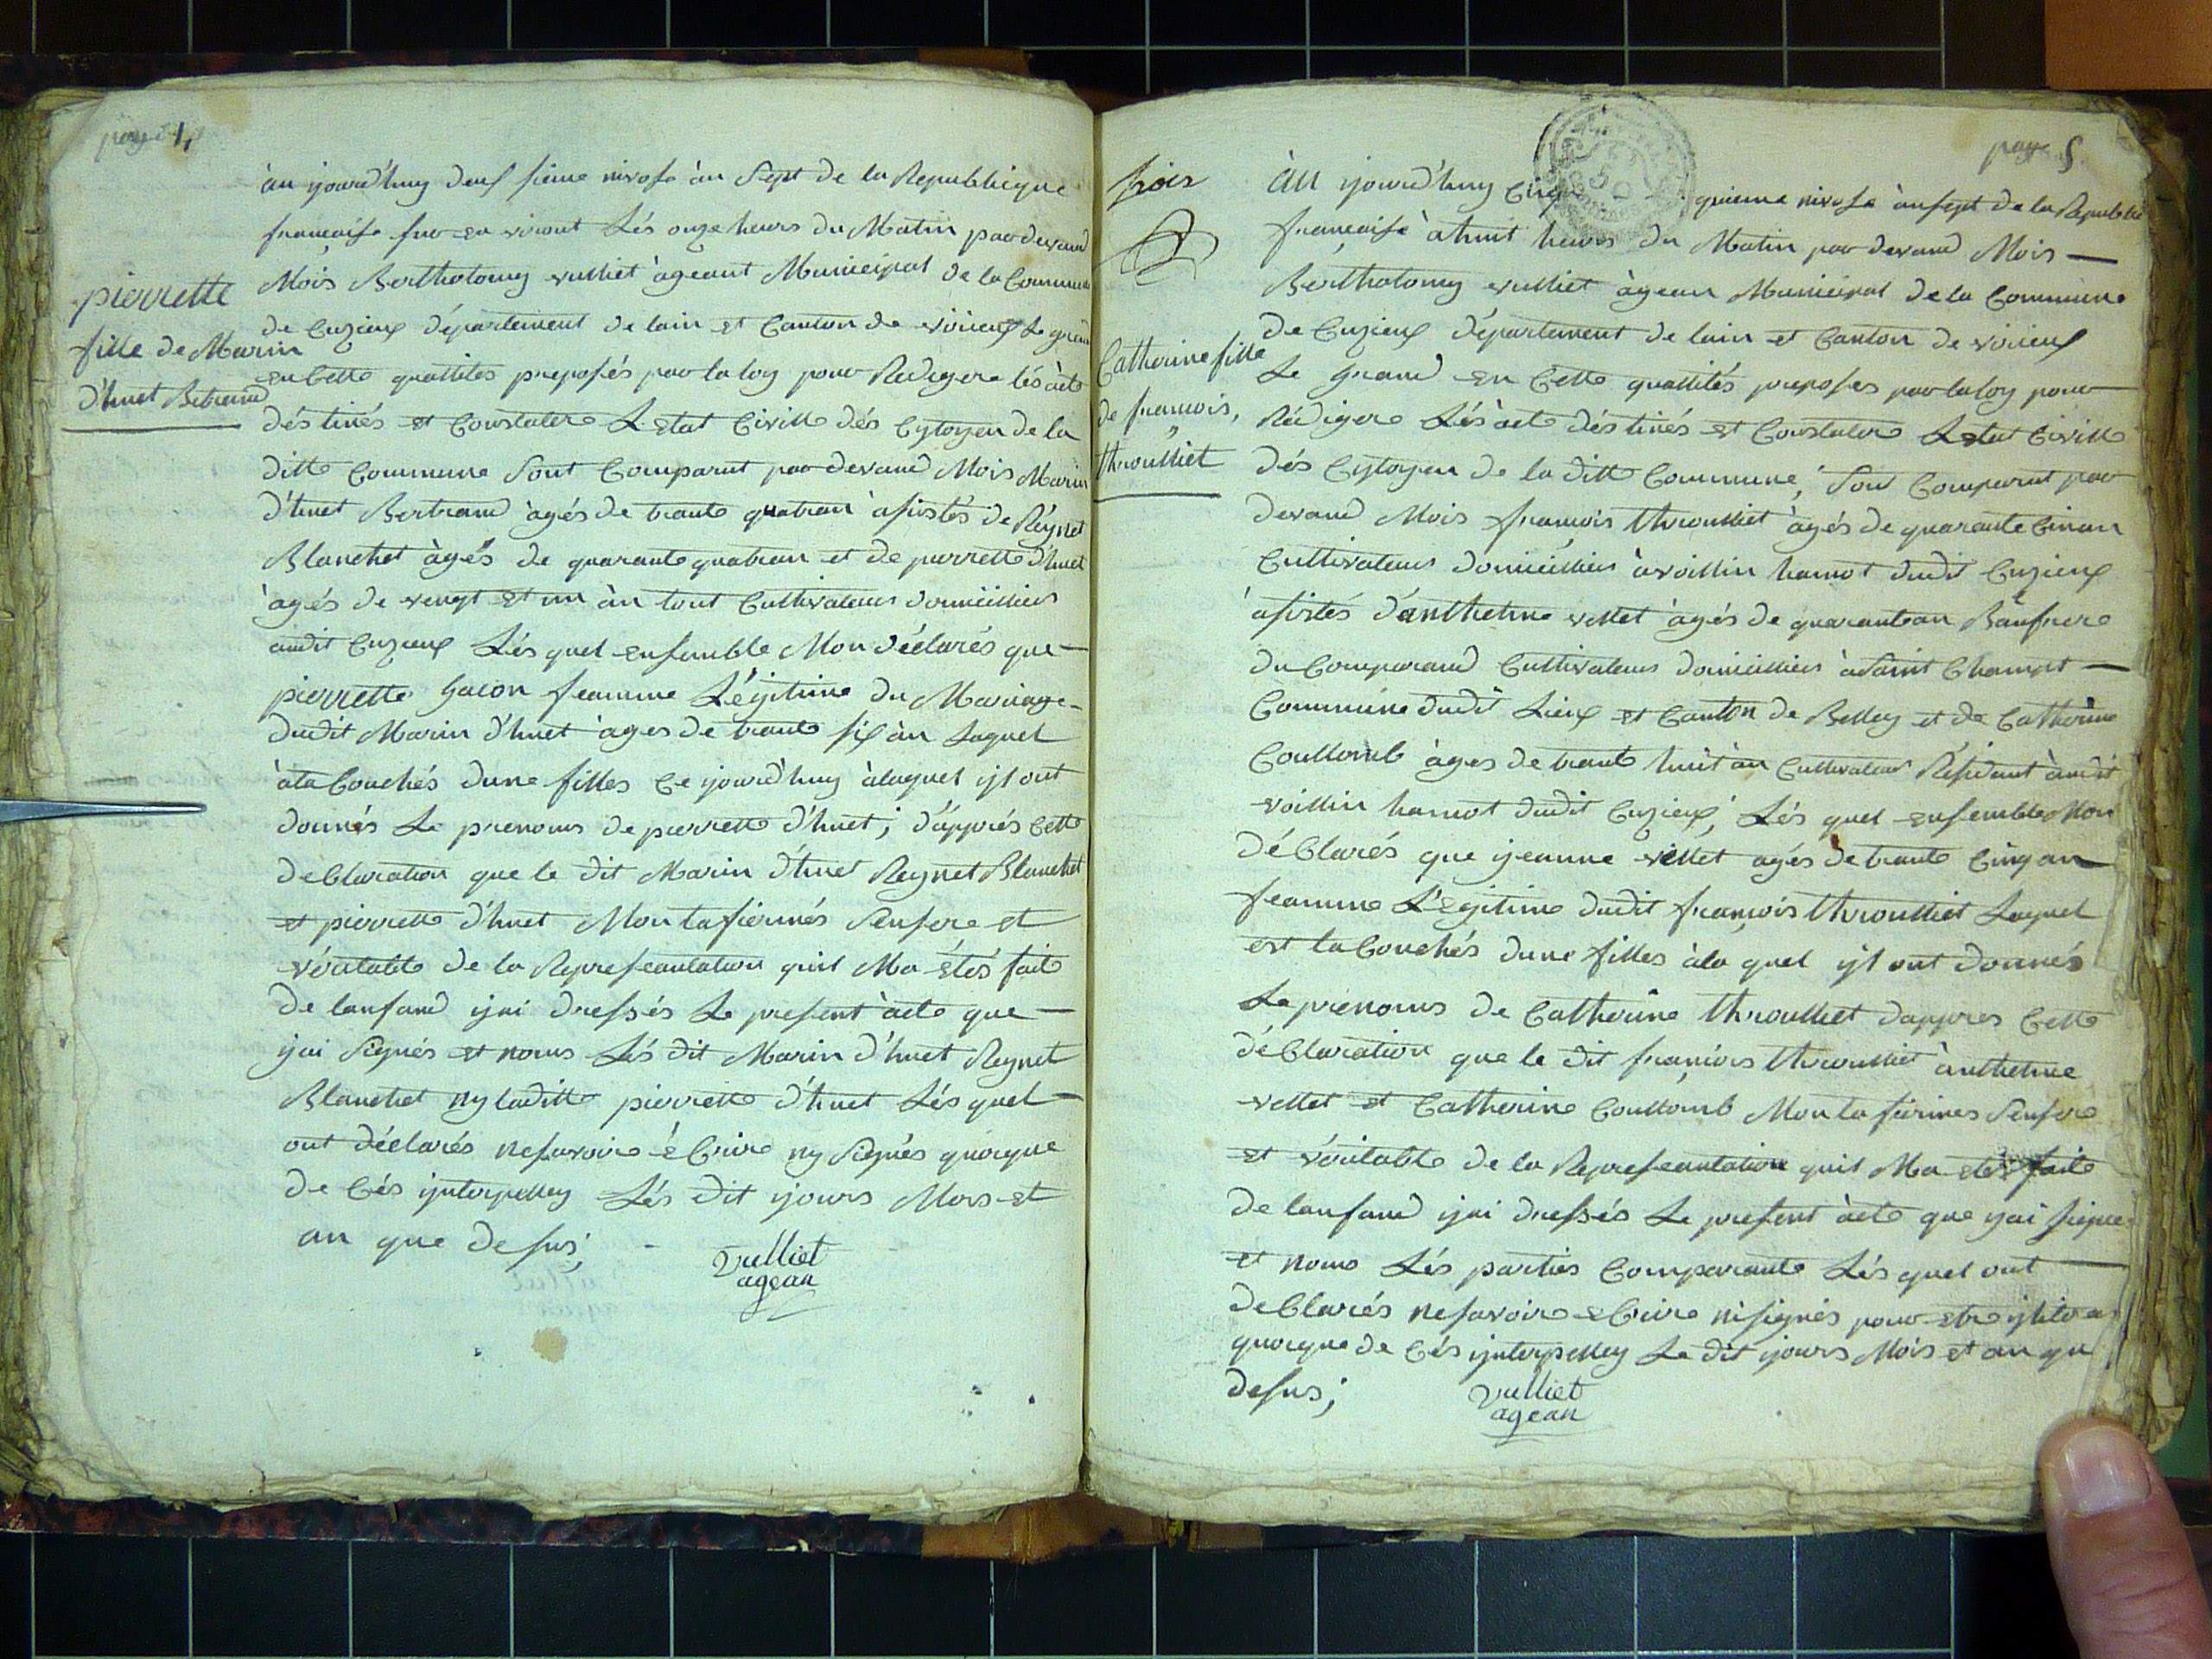 page 4
àu ijourd'huy deuf sieme nivose àn Sept de la Republicque
francaise sur en viront Lés onze heurs du Matin par devand
Mois Bertholomy vulliet àgeant Municipal de la Commune
de Cuzieux département de lain et Canton de virieux Le grand
en Cette quallités preposés par la loy pour Rediger lés àcte
déstinés et Constater L Etat Civille dés Cytoyen de la
ditte Commune Sont Comparut par devand Mois Marin
d'huet Bertrand àgés de trante quatran àsistés de Reynet
Blanchet àgés de quarante quatran et de pierrette d'huet
àgés de vengt et un àn tout Cultivateurs domicilliers
audit Cuzieux Lés quel ensemble Mon déclarés que
pierrette Gacon feamme Légitime du Mariage
dudit Marin d'huet àges de trante six àn Laquel
àta Couchés dune filles Ce ijourd'huy àlaquel ijl ont
donnés Le prenoms de pierrette d'huet; d'apprés Cette
déClaration que le dit Marin d'huet Reynet Blanchet
et pierrette d'huet Mont afiermés Senfere et
véritable de la Represeantation quil Ma étés fait
de lanfand ijai dressés Le present àcte que
ijai Signés et noms Lés dit Marin d'huet Reynet
Blanchet ny laditte pierrette d'huet Lés quel
ont déclarés nesavoire éCrire ny Signés quoique
de Cés ijnterpelley Lés dit ijours Mois et
an que desus;
vulliet
agean
pierrette
fille de Marin
d'huet Betrand
page 5
foies
Catherine fille
de francois,
throulliet
Àu ijourd'huy Cinq quieme nivose ànsept de la Republi
francaise à huit heurs du Matin par devand Mois
Bertholomy vulliet àgean Municipal de la Commune
de Cuzieux département de lain et Canton de virieux
Le Grand en Cette quallités preposes par la loy pour
Rédiger Lés àcte déstinés et Constater L etat Civille
dés Cytoyen de la ditte Commune; Sont Comparut par
devand Mois francois throulliet àgés de quarante Cinan
Cultivateurs domicilliers àvoillin hamot dudit Cuzieux
àsistés d'anthelme vellet àgés de quarantean Baufrere
du Comparand Cultivateurs domicilliers àsaint Champt
Commune dudit Lieux et Canton de Belley et de Catherine
Coullomb àges de trante huit àn Cultivateur Résidant àudit
voillin hamot dudit Cuzieux; Lés quel ensemble Mon
déClarés que ijeanne vellet agés de trante Cinq an
feamme L'Egitime dudit francois throulliet Laquel
est laCouchés dune filles àla quel ijl ont donnés
Le prénoms de Catherine throulliet dappres Cette
déClaration que le dit francois throulliet ànthelme
vellet et Catherine Coullomb Mont a fiermes Senfere
et véritable de la Represeantation quil Ma etes faite
de lanfand ijai dressés Le present àcte que ijai signe
et noms Lés parties Comparante Lés quel ont
déClarés nesavoire eCrire nisignés pour etre
quoique de Cés ijnterpelley Le dit ijours Mois et an qu
desus;
vulliet
agean